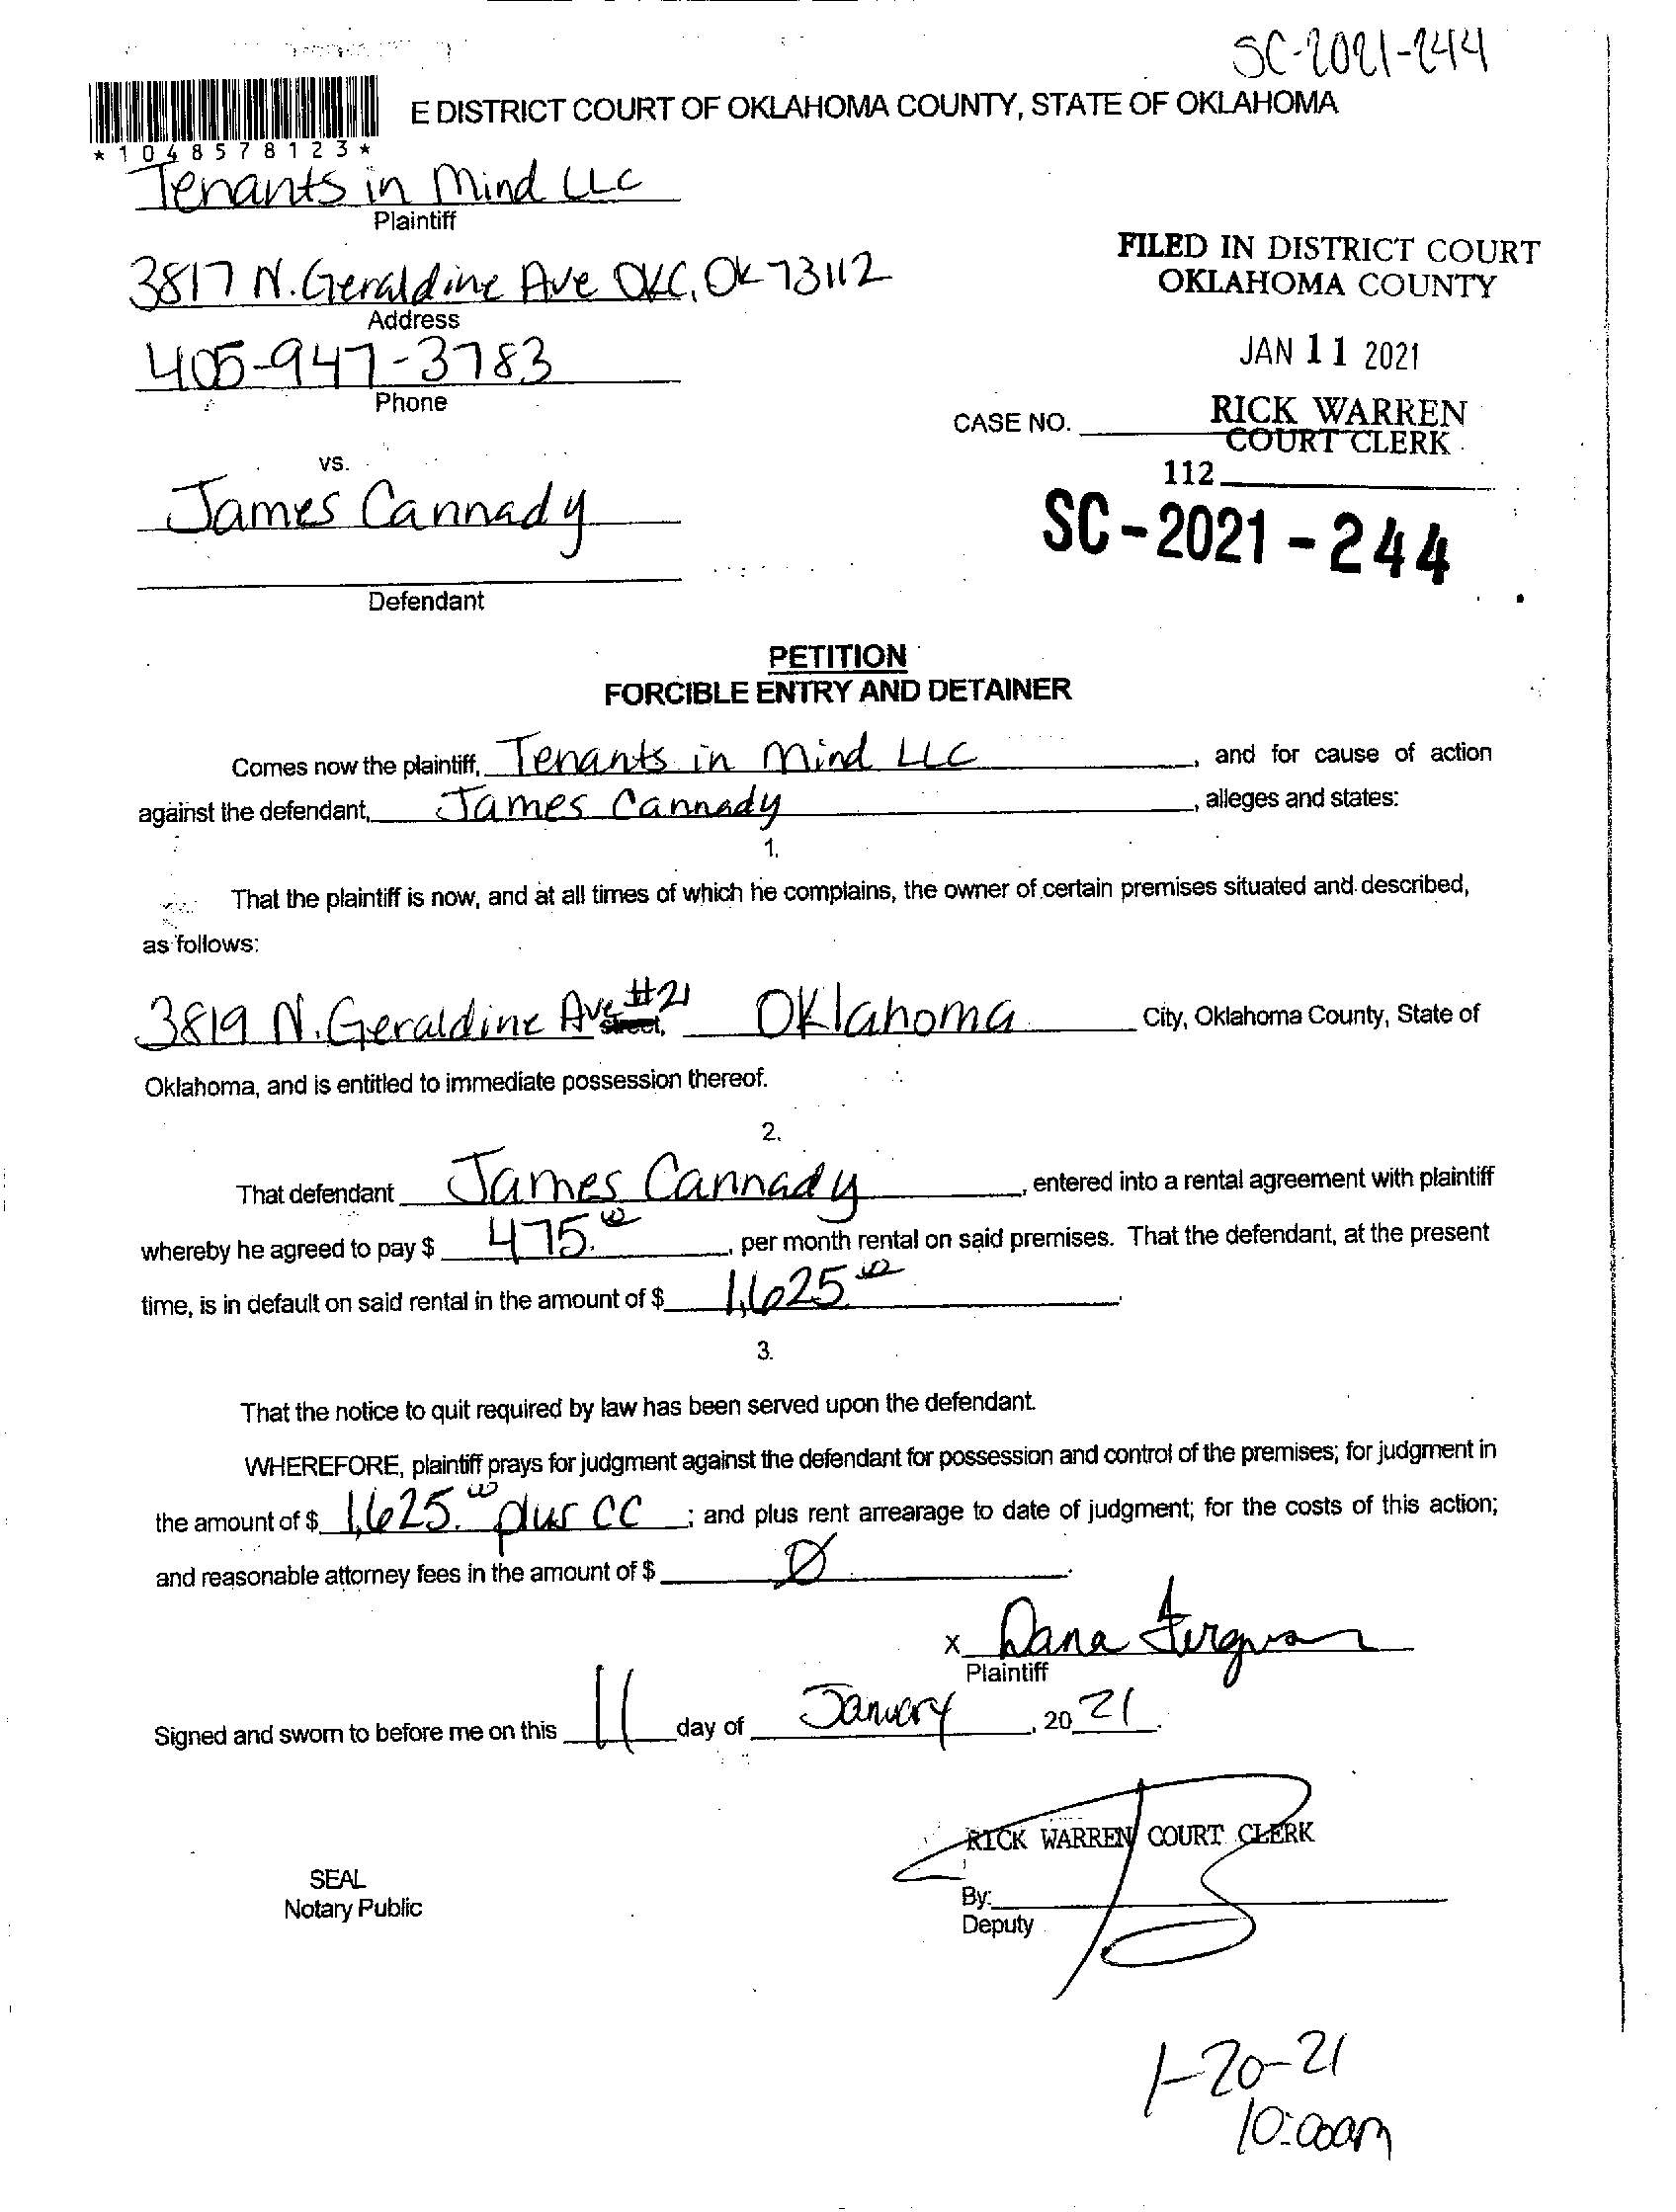 SC-2021-244
E DISTRICT COURT OF OKLAHOMA COUNTY, STATE OF OKLAHOMA
*1048578123*
Tenants in Mind LLC
Plaintiff
3817 N. Geraldine Ave OKC, OK 73112
Address
405-947-3783
Phone
FILED IN DISTRICT COURT
OKLAHOMA COUNTY
JAN 11 2021
RICK WARREN
COURT CLERK
CASE NO.
112
vs.
James Cannady
SC-2021-244
Defendant
PETITION
FORCIBLE ENTRY AND DETAINER
Comes now the plaintiff, Tenants in Mind LLC, and for cause of action
against the defendant, James Cannady, alleges and states:
1.
That the plaintiff is now, and at all times of which he complains, the owner of certain premises situated and described,
as follows:
3819 N. Geraldine Ave #21 street, Oklahoma City, Oklahoma County, State of
Oklahoma, and is entitled to immediate possession thereof.
2.
That defendant James Cannady, entered into a rental agreement with plaintiff
whereby he agreed to pay $ 475.00, per month rental on said premises. That the defendant, at the present
time, is in default on said rental in the amount of $ 1,625.00.
3.
That the notice to quit required by law has been served upon the defendant.
WHEREFORE, plaintiff prays for judgment against the defendant for possession and control of the premises; for judgment in
the amount of $ 1,625.00 plus CC; and plus rent arrearage to date of judgment; for the costs of this action;
and reasonable attorney fees in the amount of $ Ø.
x Dana Ferguson
Plaintiff
Signed and sworn to before me on this 11 day of January, 2021.
RICK WARREN COURT CLERK
SEAL
Notary Public
By:
Deputy
1-20-21
10:00am